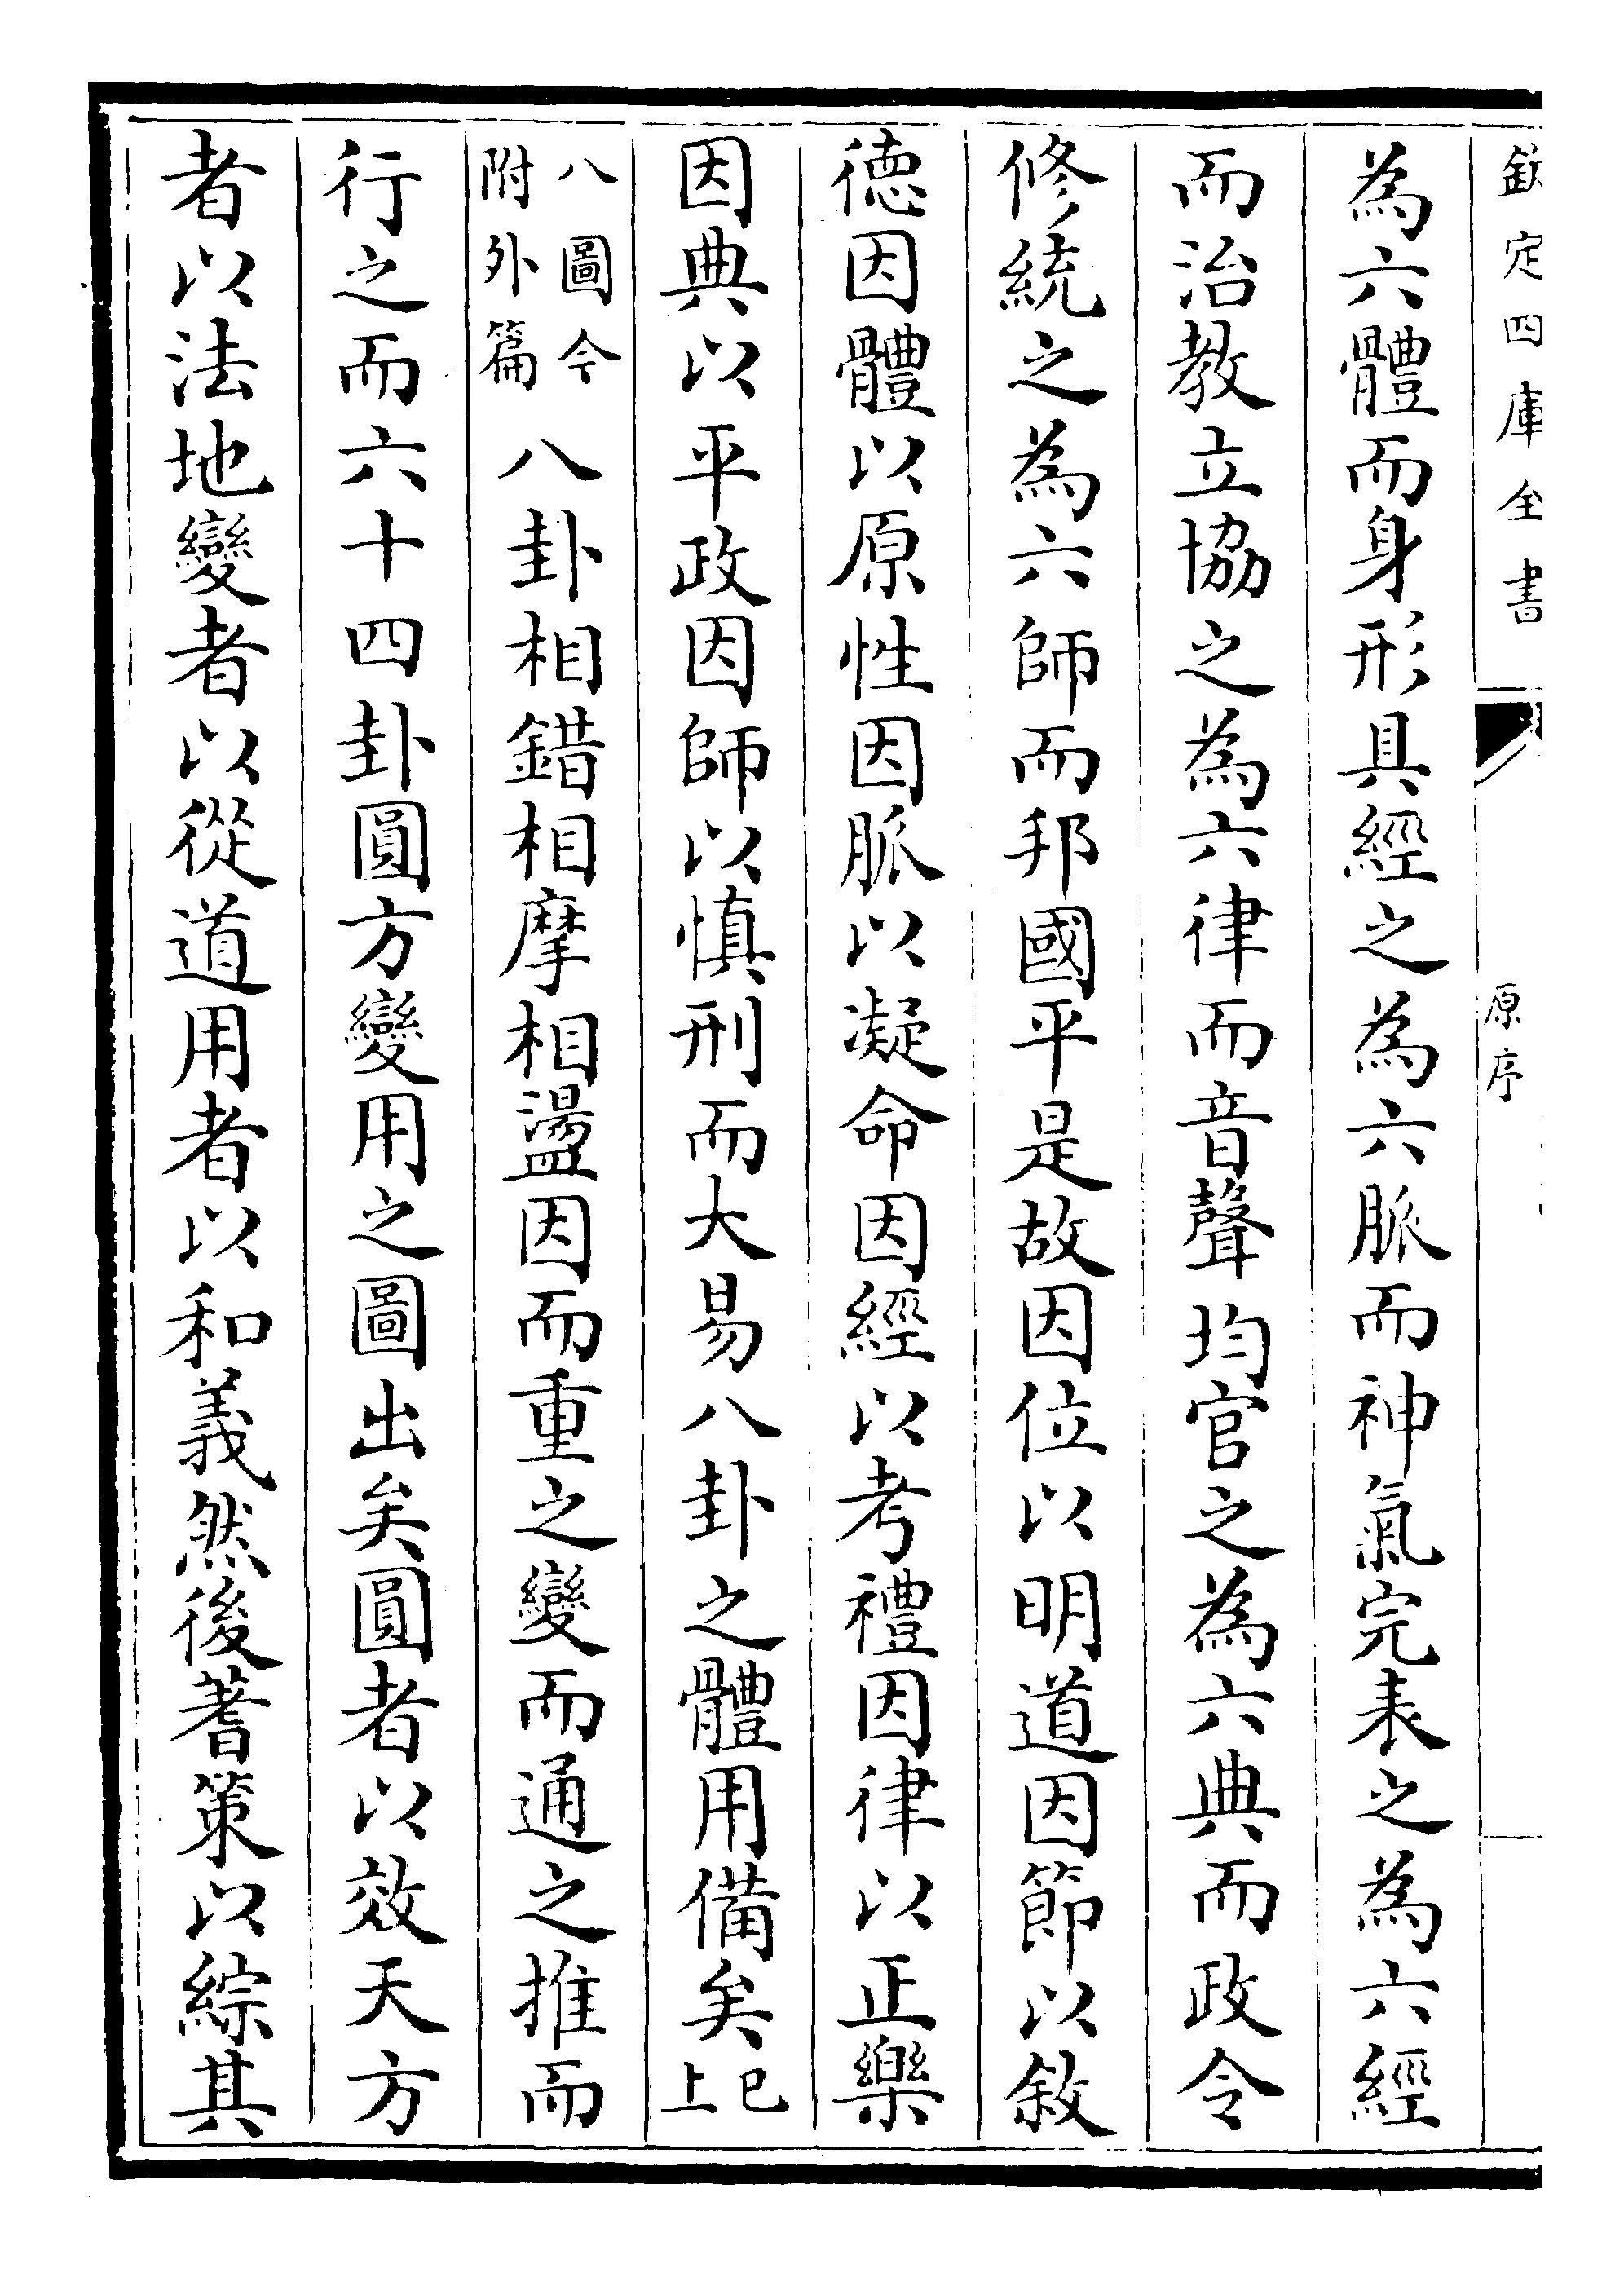 欽定四庫全書
原序
為六體而身形具經之為六脈而神氣完表之為六經
而治教立協之為六律而音聲均官之為六典而政令
修統之為六師而邦國平是故因位以明道因節以敘
德因體以原性因脈以凝命因經以考禮因律以正樂
因典以平政因師以慎刑而大易八卦之體用備矣已上
八圖今附外篇八卦相錯相摩相盪因而重之變而通之推而
行之而六十四卦圓方變用之圖出矣圓者以效天方
者以法地變者以從道用者以和義然後蓍策以綜其